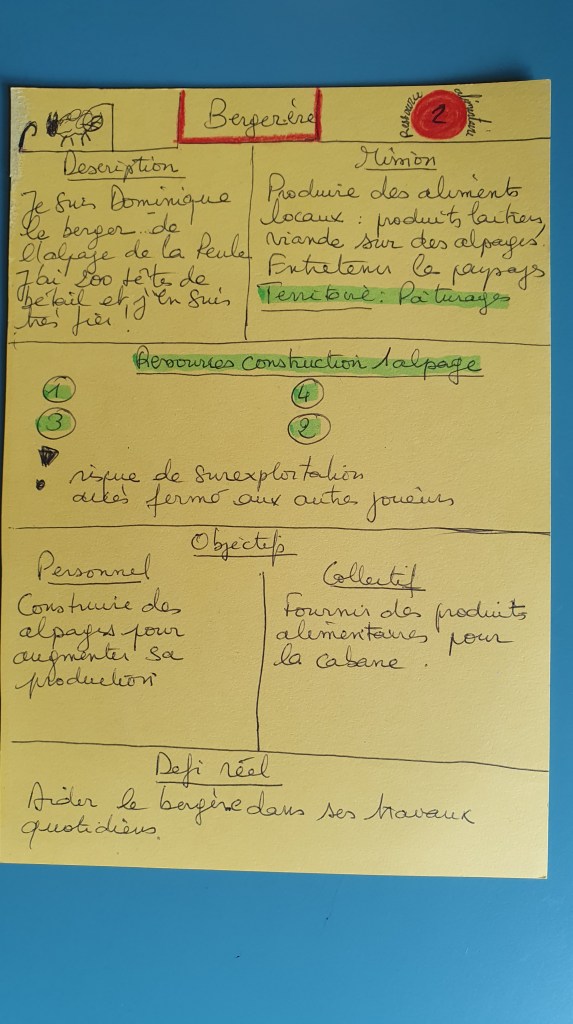 Bergerère
Ressource alimentaire
2
Description
Je suis Dominique
le berger de
l'alpage de la Peule
J'ai 200 têtes de
bétail et j'en suis
très fier !
Mission
Produire des aliments
locaux : produits laitiers,
viande sur des alpages.
Entretenir le paysage
Territoire : Pâturages
Ressources construction 1 alpage
1
4
3
2
risque de surexploitation
accès fermé aux autres joueurs
Objectifs
Personnel
Construire des
alpages pour
augmenter sa
production
Collectif
Fournir des produits
alimentaires pour
la cabane.
Defi réel
Aider le bergère dans ses travaux
quotidiens.